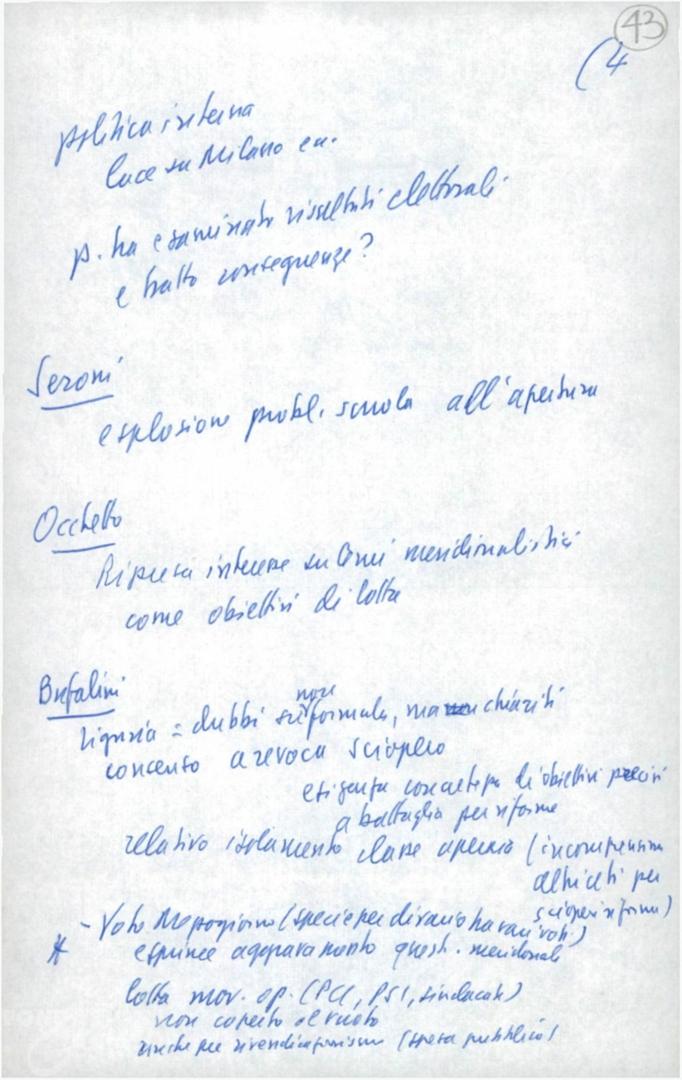 43
(4
politica interna
luce su Milano ecc.
p. ha esaminato risultati elettorali
e tratto conseguenze?
Seroni
esplosione probl. scuola all'apertura
Occhetto
Ripresa intense su temi meridionalistici
come obiettivi di lotta
Bufalini
non
Liguria = dubbi su formula, ma chiariti
consenso a revoca sciopero
esigenza concretezza di obiettivi precisi
a battaglia per riforme
relativo isolamento classe operaia (incomprensione
altri ceti per
scioperi riforme)
- Voto Mezzogiorno (specie per divario ha vari voti)
* esprime aggravamento quest. meridionale
lotta mov. op. (PCI, PSI, sindacati)
non coperto il vuoto
anche per rivendicazionismo (spesa pubblica)